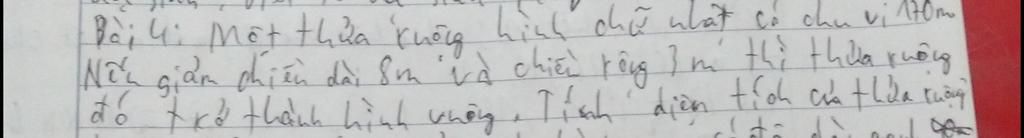 Bài 4: Một thửa ruộng hình chữ nhật có chu vi 170m
Nếu giảm chiều dài 8m và chiều rộng 3m thì thửa ruộng
đó trở thành hình vuông. Tính diện tích của thửa ruộng